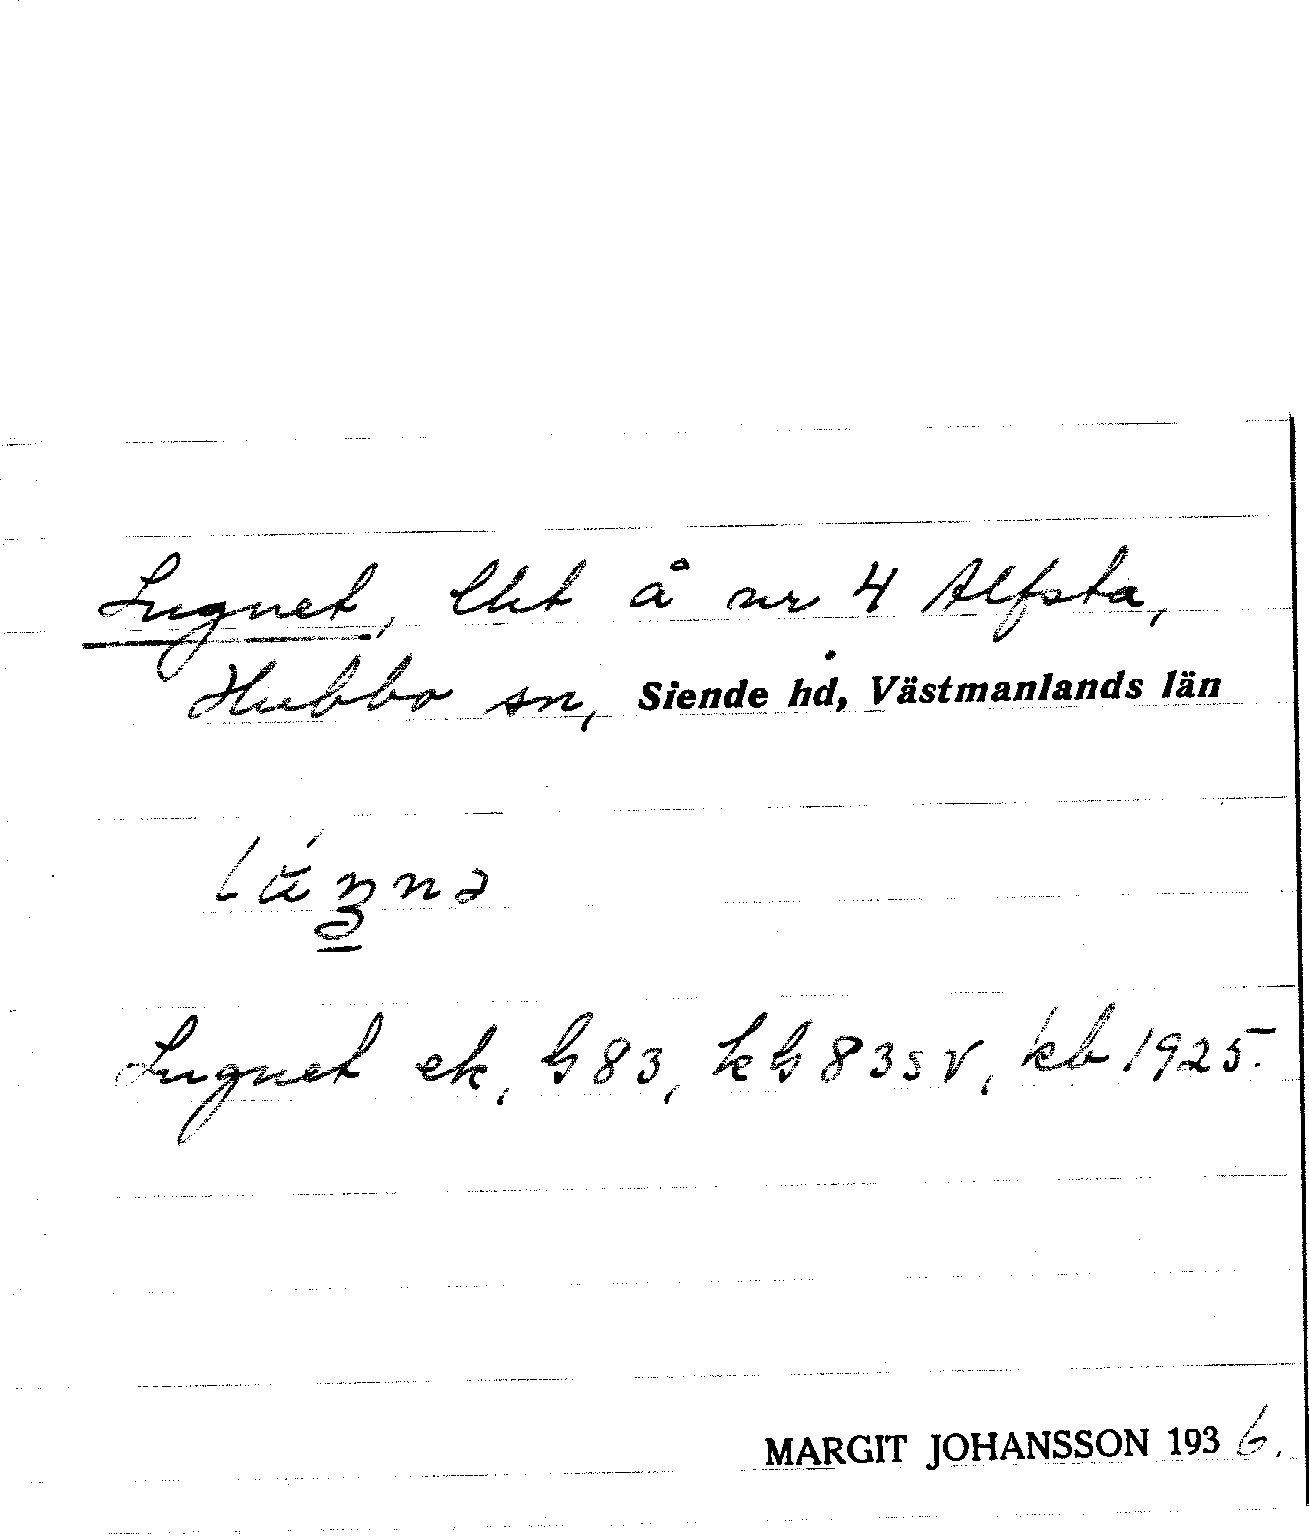 Lugnet, lht å nr 4 Alfsta,
Hubbo sn, Siende hd, Västmanlands län
Lugnet ek, G 83, kG 83 s v, kb 1925.
MARGIT JOHANSSON 1936.